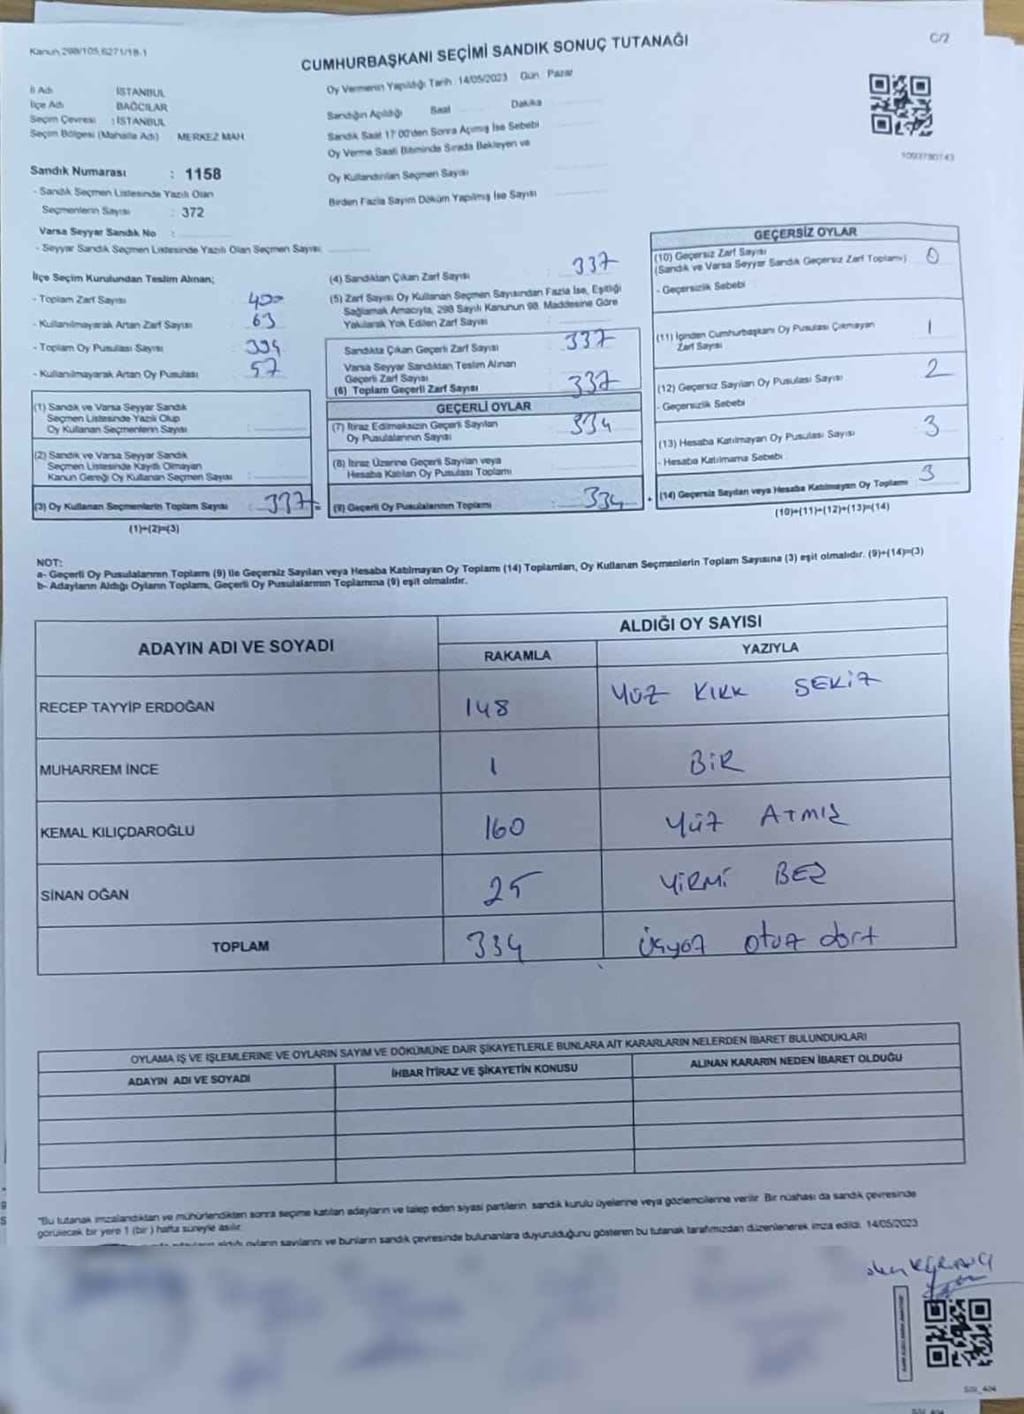 Kanun 298/105,6271/18-1
C/2
CUMHURBAŞKANI SEÇİMİ SANDIK SONUÇ TUTANAĞI
İl Adı İSTANBUL
İlçe Adı BAĞCILAR
Seçim Çevresi : İSTANBUL
Seçim Bölgesi (Mahalle Adı) MERKEZ MAH.
Oy Vermenin Yapıldığı Tarih 14/05/2023 Gün Pazar
Sandığın Açıldığı Saat Dakika
Sandık Saat 17 00'den Sonra Açılmış İse Sebebi
Oy Verme Saati Bitiminde Sırada Bekleyen ve
Oy Kullandırılan Seçmen Sayısı
Birden Fazla Sayım Döküm Yapılmış İse Sayısı
1093780743
Sandık Numarası : 1158
- Sandık Seçmen Listesinde Yazılı Olan
Seçmenlerin Sayısı : 372
Varsa Seyyar Sandık No :
- Seyyar Sandık Seçmen Listesinde Yazılı Olan Seçmen Sayısı
İlçe Seçim Kurulundan Teslim Alınan;
- Toplam Zarf Sayısı 400
- Kullanılmayarak Artan Zarf Sayısı 63
- Toplam Oy Pusulası Sayısı 394
- Kullanılmayarak Artan Oy Pusulası 57
(1) Sandık ve Varsa Seyyar Sandık
Seçmen Listesinde Yazılı Olup
Oy Kullanan Seçmenlerin Sayısı
(2) Sandık ve Varsa Seyyar Sandık
Seçmen Listesinde Kayıtlı Olmayan
Kanun Gereği Oy Kullanan Seçmen Sayısı
(3) Oy Kullanan Seçmenlerin Toplam Sayısı : 337 =
(1)+(2)=(3)
(4) Sandıktan Çıkan Zarf Sayısı 337
(5) Zarf Sayısı Oy Kullanan Seçmen Sayısından Fazla İse, Eşitliği
Sağlamak Amacıyla, 298 Sayılı Kanunun 98. Maddesine Göre
Yakılarak Yok Edilen Zarf Sayısı
Sandıkta Çıkan Geçerli Zarf Sayısı 337
Varsa Seyyar Sandıktan Teslim Alınan
Geçerli Zarf Sayısı
(6) Toplam Geçerli Zarf Sayısı 337
GEÇERLİ OYLAR
(7) İtiraz Edilmeksizin Geçerli Sayılan
Oy Pusulalarının Sayısı 334
(8) İtiraz Üzerine Geçerli Sayılan veya
Hesaba Katılan Oy Pusulası Toplamı
(9) Geçerli Oy Pusulalarının Toplamı : 334 +
GEÇERSİZ OYLAR
(10) Geçersiz Zarf Sayısı
(Sandık ve Varsa Seyyar Sandık Geçersiz Zarf Toplamı) 0
- Geçersizlik Sebebi
(11) İçinden Cumhurbaşkanı Oy Pusulası Çıkmayan
Zarf Sayısı 1
(12) Geçersiz Sayılan Oy Pusulası Sayısı 2
- Geçersizlik Sebebi
(13) Hesaba Katılmayan Oy Pusulası Sayısı 3
- Hesaba Katılmama Sebebi
(14) Geçersiz Sayılan veya Hesaba Katılmayan Oy Toplamı 3
(10)+(11)+(12)+(13)=(14)
NOT:
a- Geçerli Oy Pusulalarının Toplamı (9) ile Geçersiz Sayılan veya Hesaba Katılmayan Oy Toplamı (14) Toplamları, Oy Kullanan Seçmenlerin Toplam Sayısına (3) eşit olmalıdır. (9)+(14)=(3)
b- Adayların Aldığı Oyların Toplamı, Geçerli Oy Pusulalarının Toplamına (9) eşit olmalıdır.
ADAYIN ADI VE SOYADI
ALDIĞI OY SAYISI
RAKAMLA YAZIYLA
RECEP TAYYİP ERDOĞAN 148 YÜZ KIRK SEKİZ
MUHARREM İNCE 1 BİR
KEMAL KILIÇDAROĞLU 160 YÜZ ATMIŞ
SİNAN OĞAN 25 YİRMİ BEŞ
TOPLAM 334 Üçyöz otuz dort
OYLAMA İŞ VE İŞLEMLERİNE VE OYLARIN SAYIM VE DÖKÜMÜNE DAİR ŞİKAYETLERLE BUNLARA AİT KARARLARIN NELERDEN İBARET BULUNDUKLARI
ADAYIN ADI VE SOYADI İHBAR İTİRAZ VE ŞİKAYETİN KONUSU ALINAN KARARIN NEDEN İBARET OLDUĞU
"Bu tutanak imzalandıktan ve mühürlendikten sonra seçime katılan adayların ve talep eden siyasi partilerin sandık kurulu üyelerine veya gözlemcilerine verilir. Bir nüshası da sandık çevresinde
görülecek bir yere 1 (bir) hafta süreyle asılır.
aldığı oyların sayılarını ve bunların sandık çevresinde bulunanlara duyurulduğunu gösteren bu tutanak tarafımızdan düzenlenerek imza edildi. 14/05/2023